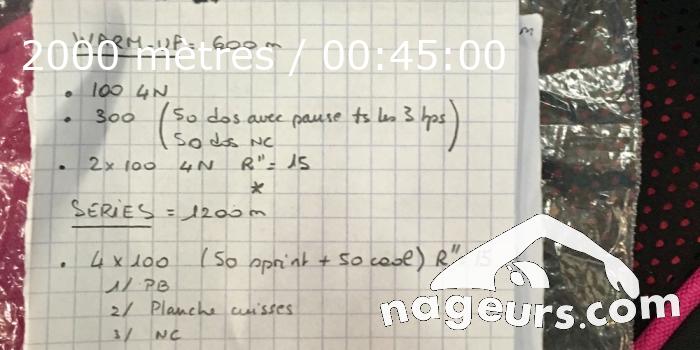 WARM UP = 600m
2000 mètres / 00:45:00
• 100 4N
• 300 (50 dos avec pause ts les 3 tps)
50 dos NC
• 2x100 4N R''= 15
*
SERIES = 1200m
• 4x100 (50 sprint + 50 cool) R'' 15
1/ PB
2/ Planche cuisses
3/ NC
nageurs.com